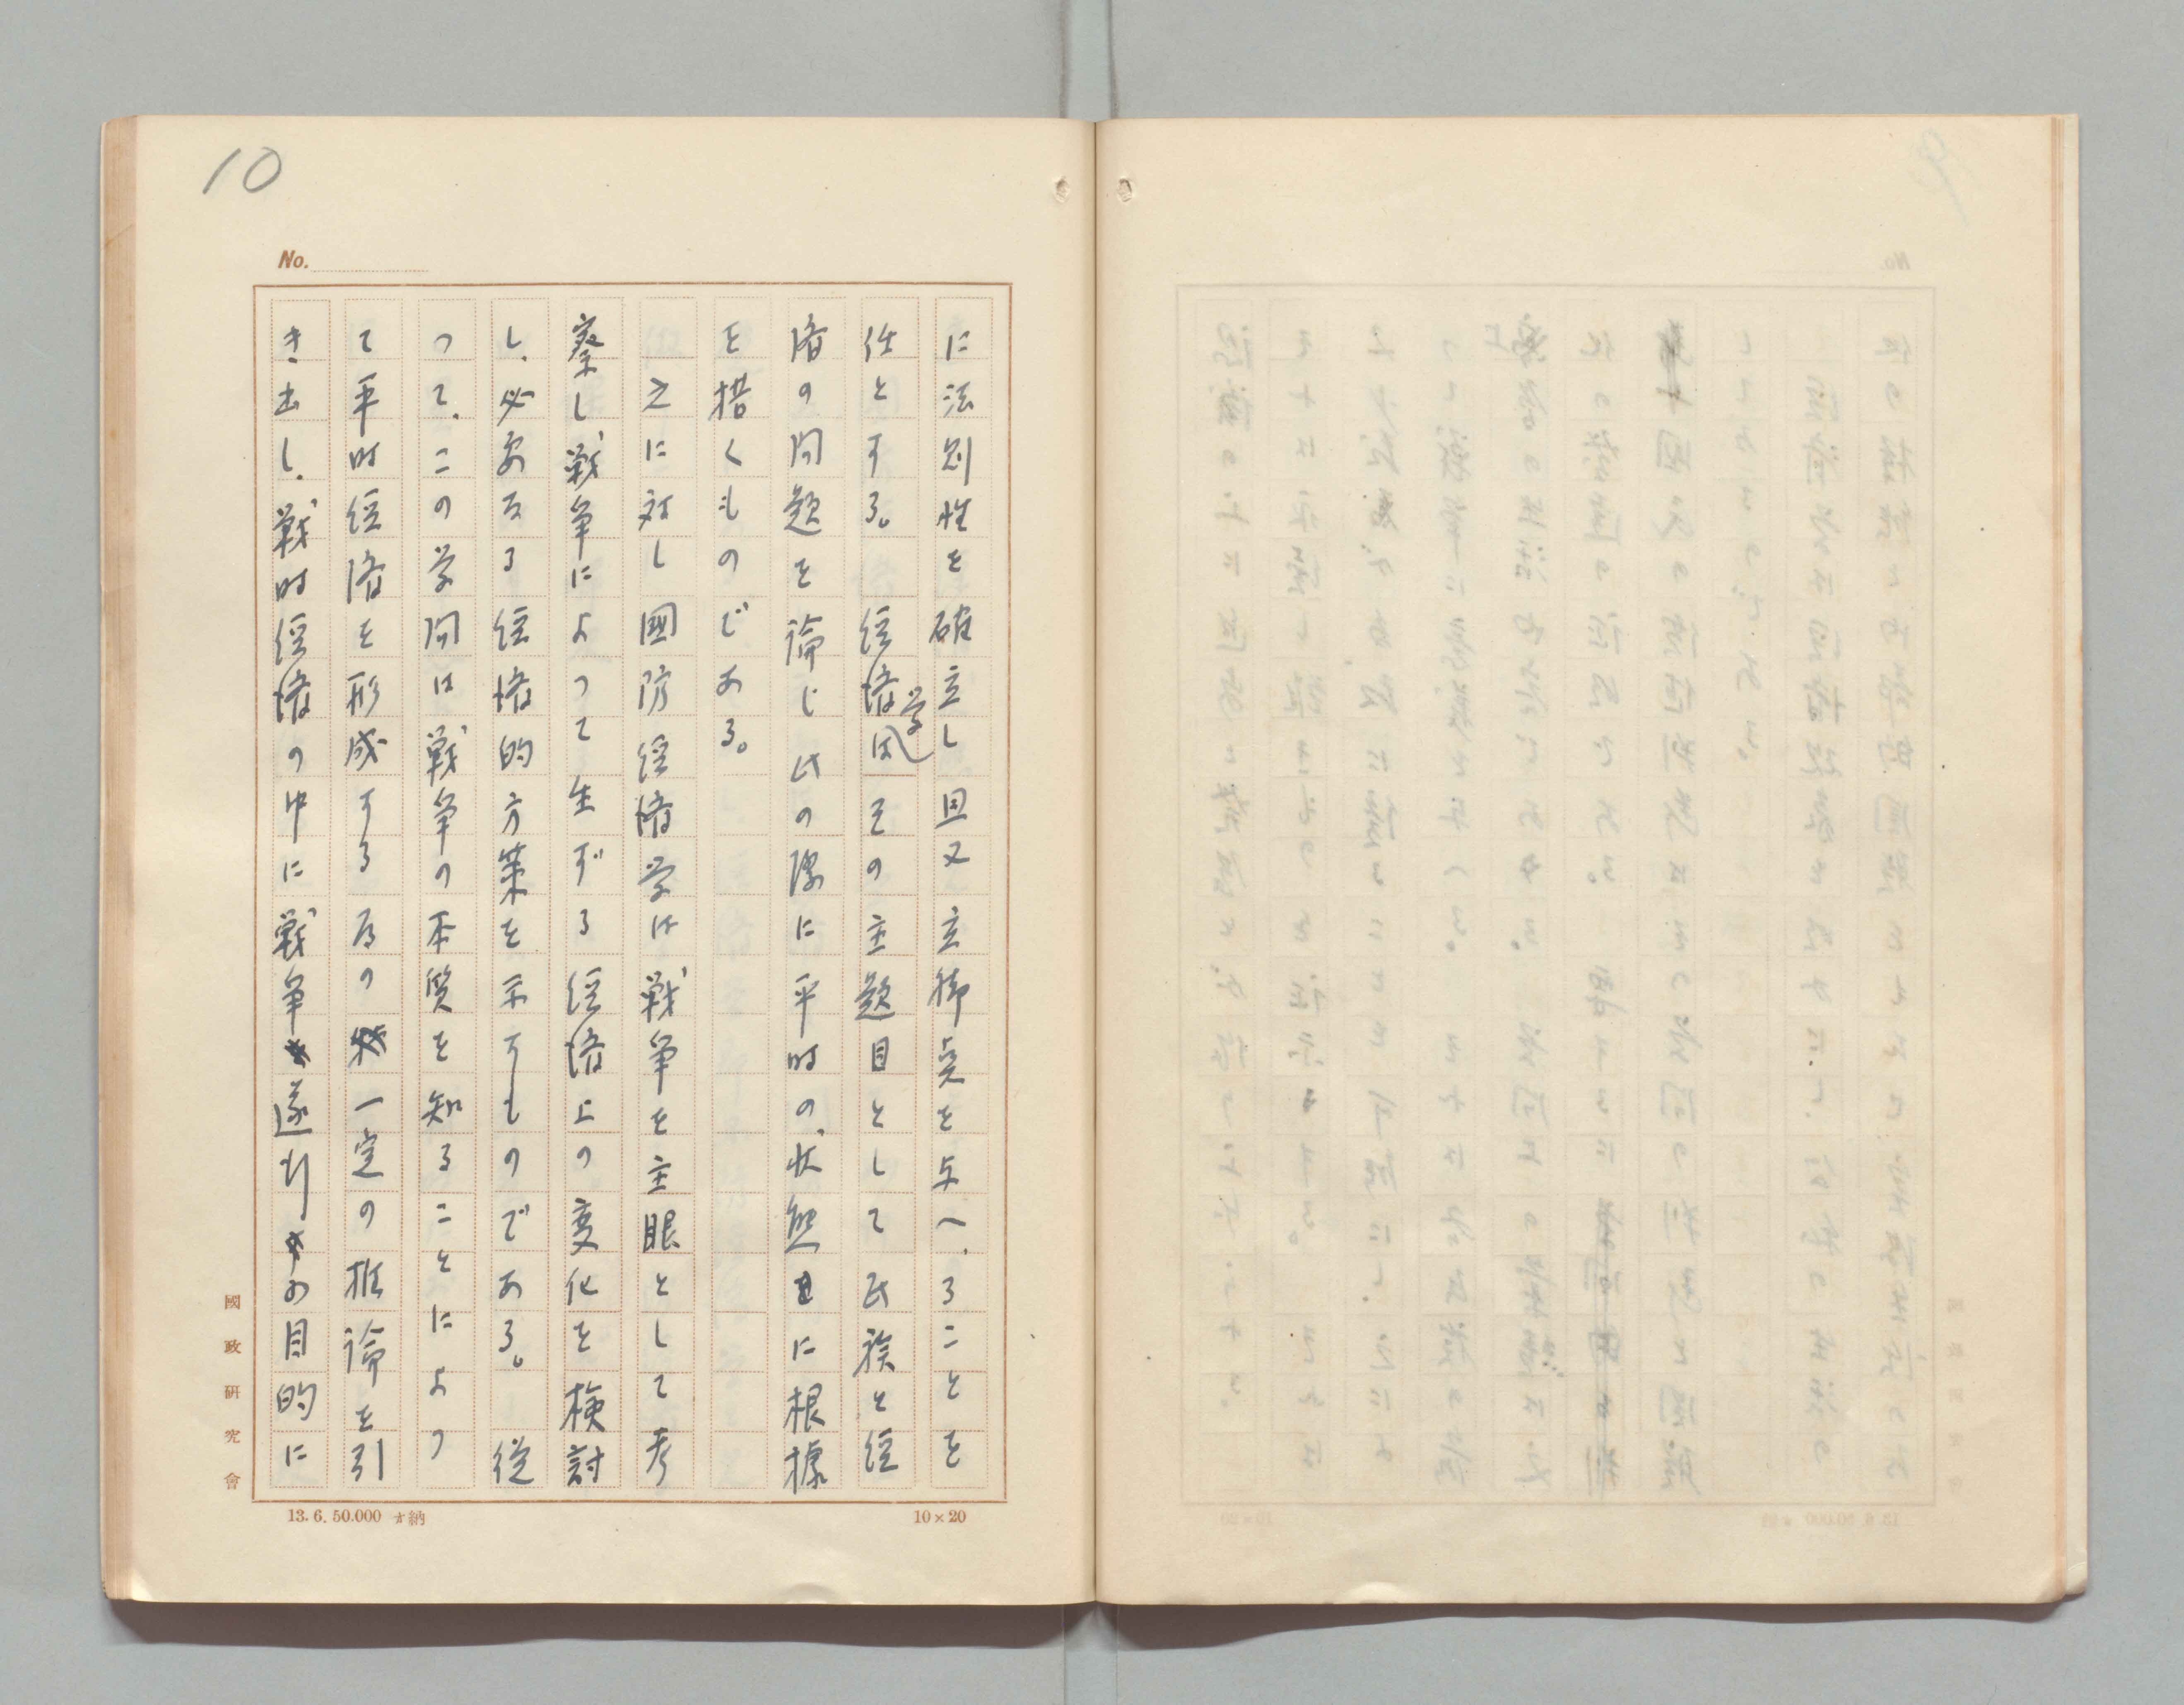 10
No.
に法則性を確立し且又立脚点を与へ、ることを
任とする。経済学はその主題目として民族と経
済の問題を論じ此の際に平時の状態に根據
を措くものである。
之に対し國防経済学は戦争を主眼として考
察し戦争によって生ずる経済上の変化を検討
し、必要なる経済的方策を示すものである。従
つて、この学問は戦争の本質を知ることによつ
て平時経済を形成する為の一定の推論を引
き出し、戦時経済の中に戦争遂行の目的に
國政研究會
13.6.50.000 納
10×20